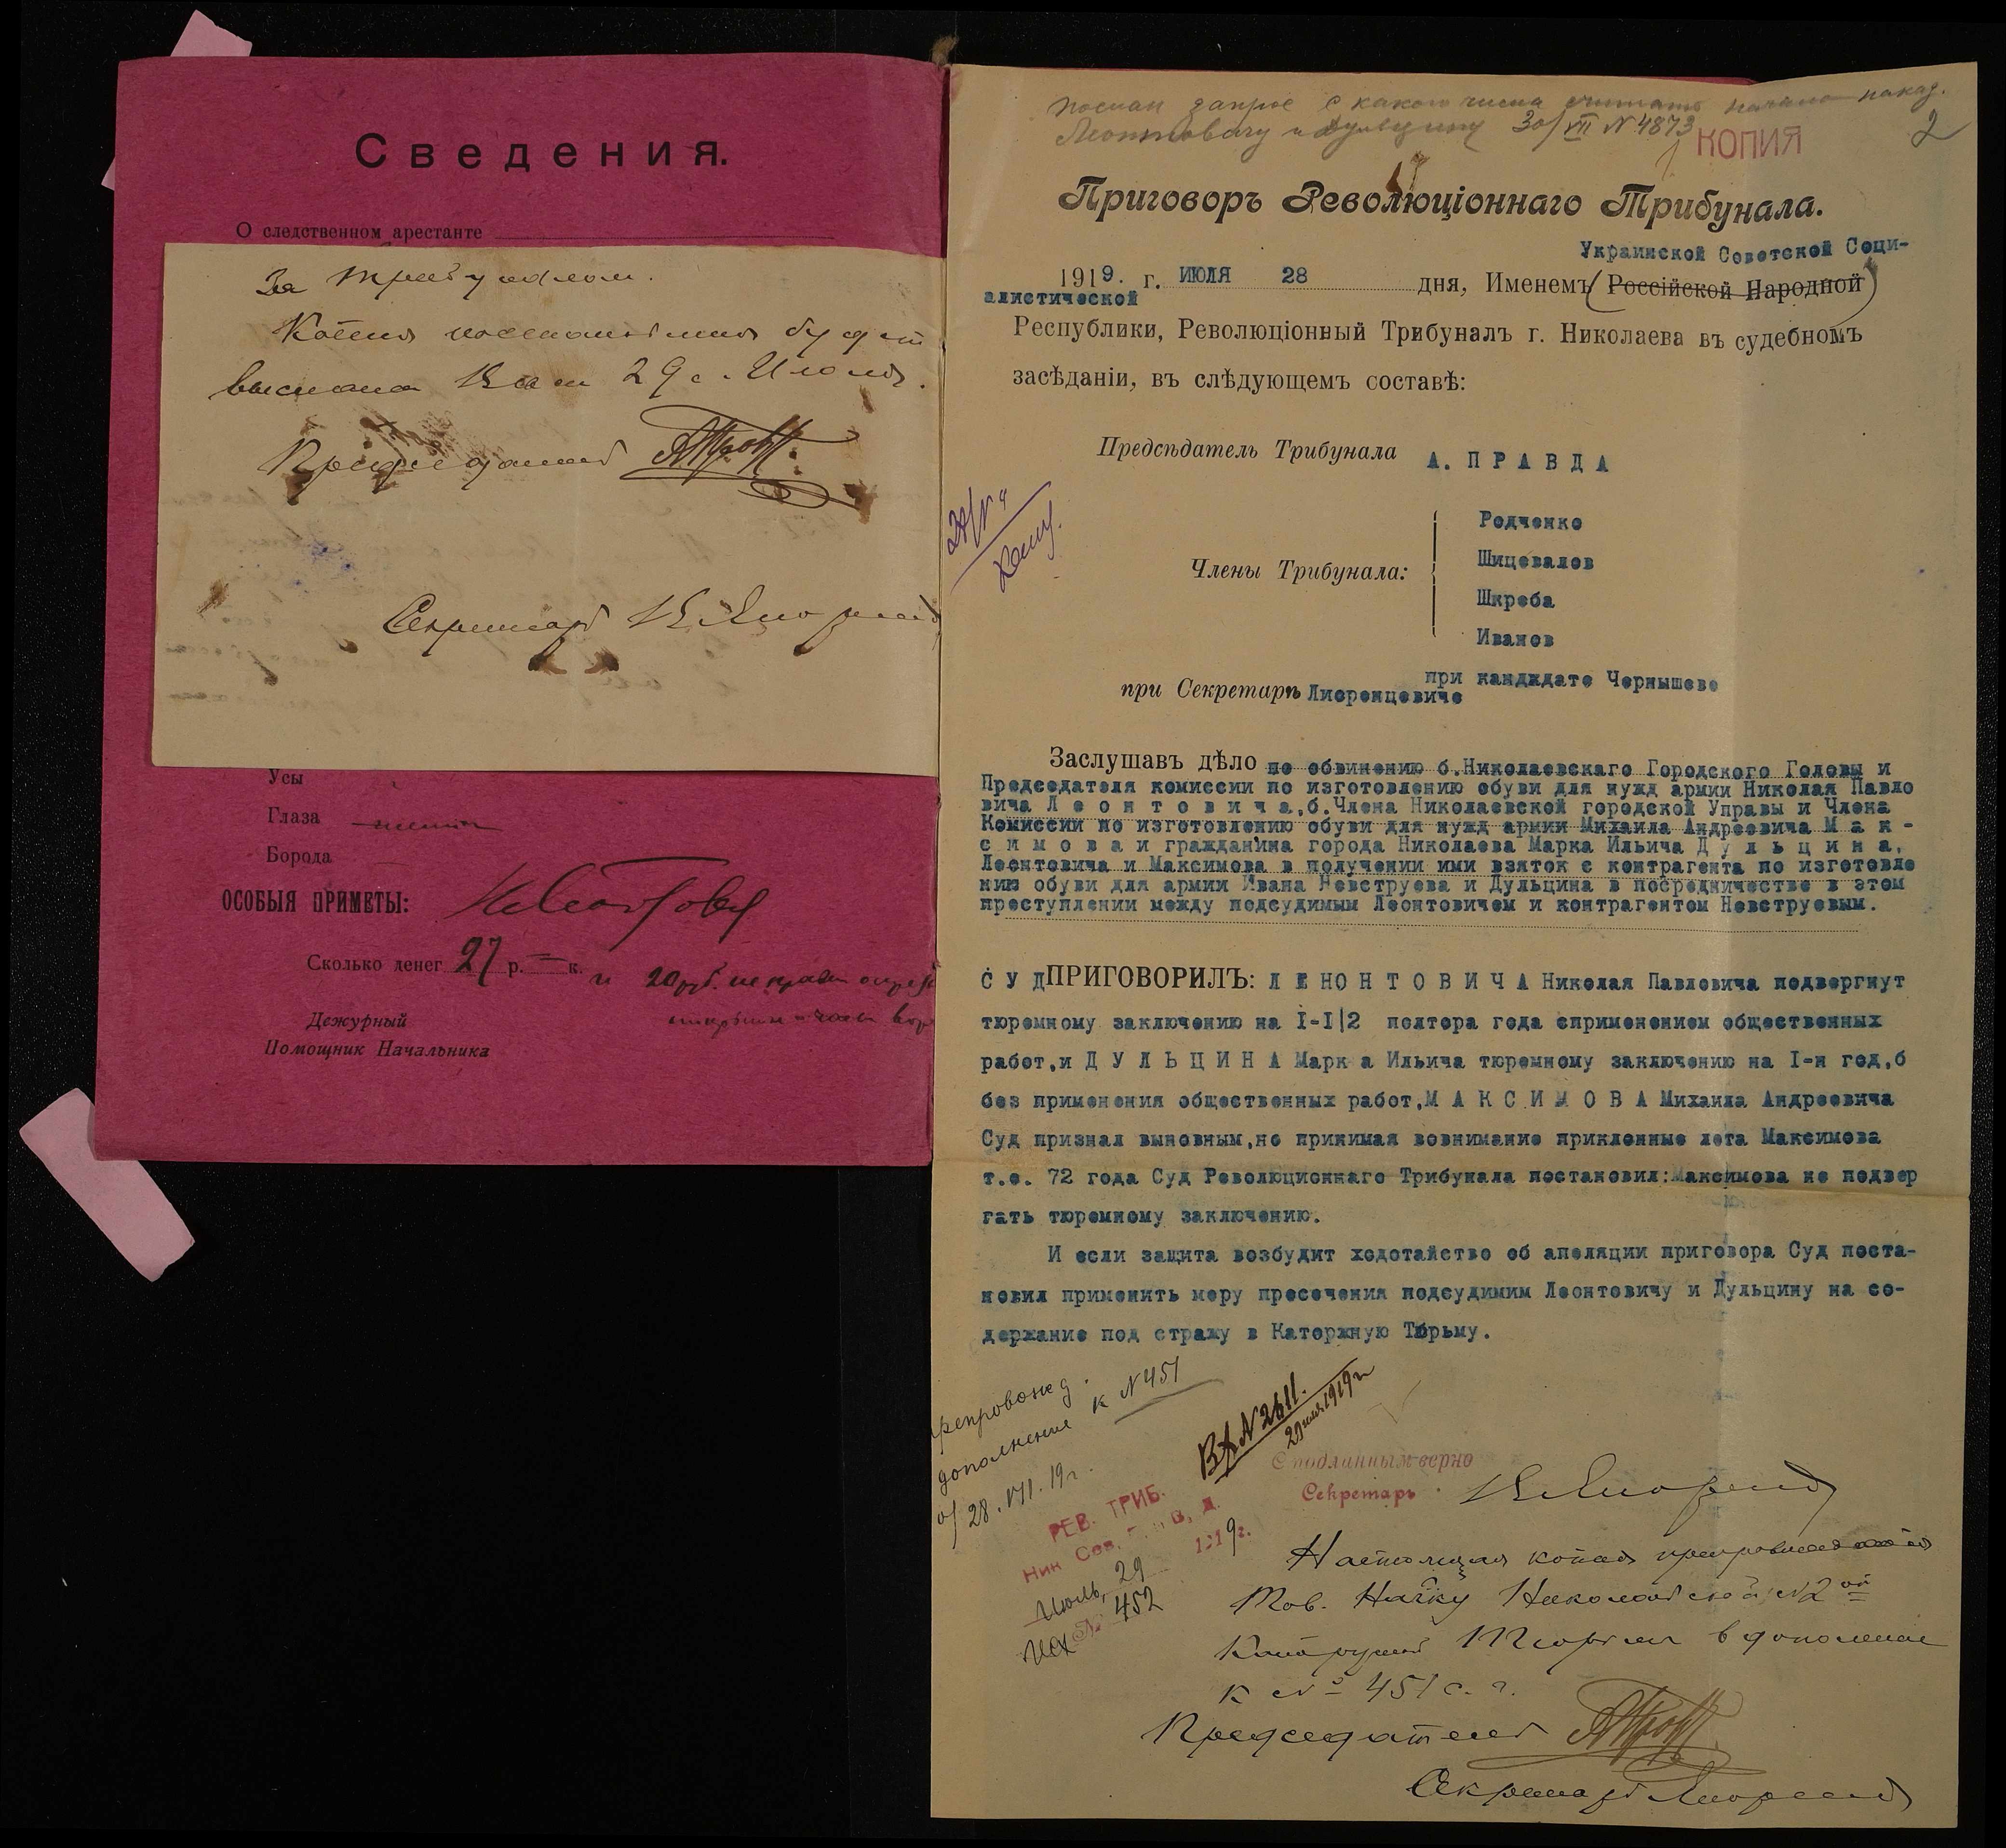 Сведения.
О следственном арестанте
За трибуналом.
Копия постановления будет
выслана Вам 29 с. Июля.
Председатель
Секретарь
Усы
Глаза
Борода
ОСОБЫЯ ПРИМЕТЫ:
Сколько денег 27 р. — к. и 20 руб.
Дежурный
Помощник Начальника
Послан запрос с какого числа считать начало наказ.
Леонтовичу и Дульцину 30/VII N 4873
КОПИЯ
2
Приговоръ Революціоннаго Трибунала.
Украинской Советской Соци-
1919. г. ИЮЛЯ 28 дня, Именемъ (Россійской Народной)
алистической
Республики, Революціонный Трибуналъ г. Николаева въ судебномъ
засѣданіи, въ слѣдующемъ составѣ:
Предсѣдатель Трибунала А. ПРАВДА
Родченко
Шицевалов
Члены Трибунала:
Шкреба
Иванов
при кандидате Чернышеве
при Секретарѣ Лиоренцевиче
Заслушавъ дѣло по обвинению б.Николаевскаго Городского Головы и
Председателя комиссии по изготовлению обуви для нужд армии Николая Павло
вича Л е о н т о в и ч а,б.Члена Николаевской городской Управы и Члена
Комиссии по изготовлению обуви для нужд армии Михаила Андреевича М а к -
с и м о в а и гражданина города Николаева Марка Ильича Д у л ь ц и н а,
Леонтовича и Максимова в получении ими взяток с контрагента по изготовле
нию обуви для армии Ивана Невструева и Дульцина в посредничестве в этом
преступлении между подсудимым Леонтовичем и контрагентом Невструевым.
С У Д ПРИГОВОРИЛЪ: Л Е Н О Н Т О В И Ч А Николая Павловича подвергнут
тюремному заключению на I-I|2 полтора года сприменением общественных
работ,и Д У Л Ь Ц И Н А Марк а Ильича тюремному заключению на I-н год,б
без применения общественных работ,М А К С И М О В А Михаила Андреевича
Суд признал выновным,но принимая вовнимание приклонные лета Максимова
т.е. 72 года Суд Революционнаго Трибунала постановил:Максимова не подвер
гать тюремному заключению.
И если защита возбудит ходотайство об апеляции приговора Суд поста-
новил применить меру пресечения подсудимим Леонтовичу и Дульцину на со-
держание под стражу в Каторжную Тюрьму.
препровожд.
дополнение к N 451
от 28.VII.19г.
Вх N 2611.
29 июля 1919 г
С подлинным верно
Секретарь
РЕВ. ТРИБ.
Ник Сов.
1919г.
Июль, 29
Исх № 452
Настоящая копия препровождается
Тов. Нач-ку Николаевской N 2ой
Каторжной Тюрьмы в дополнение
к № 451 с. г.
Председатель
Секретарь